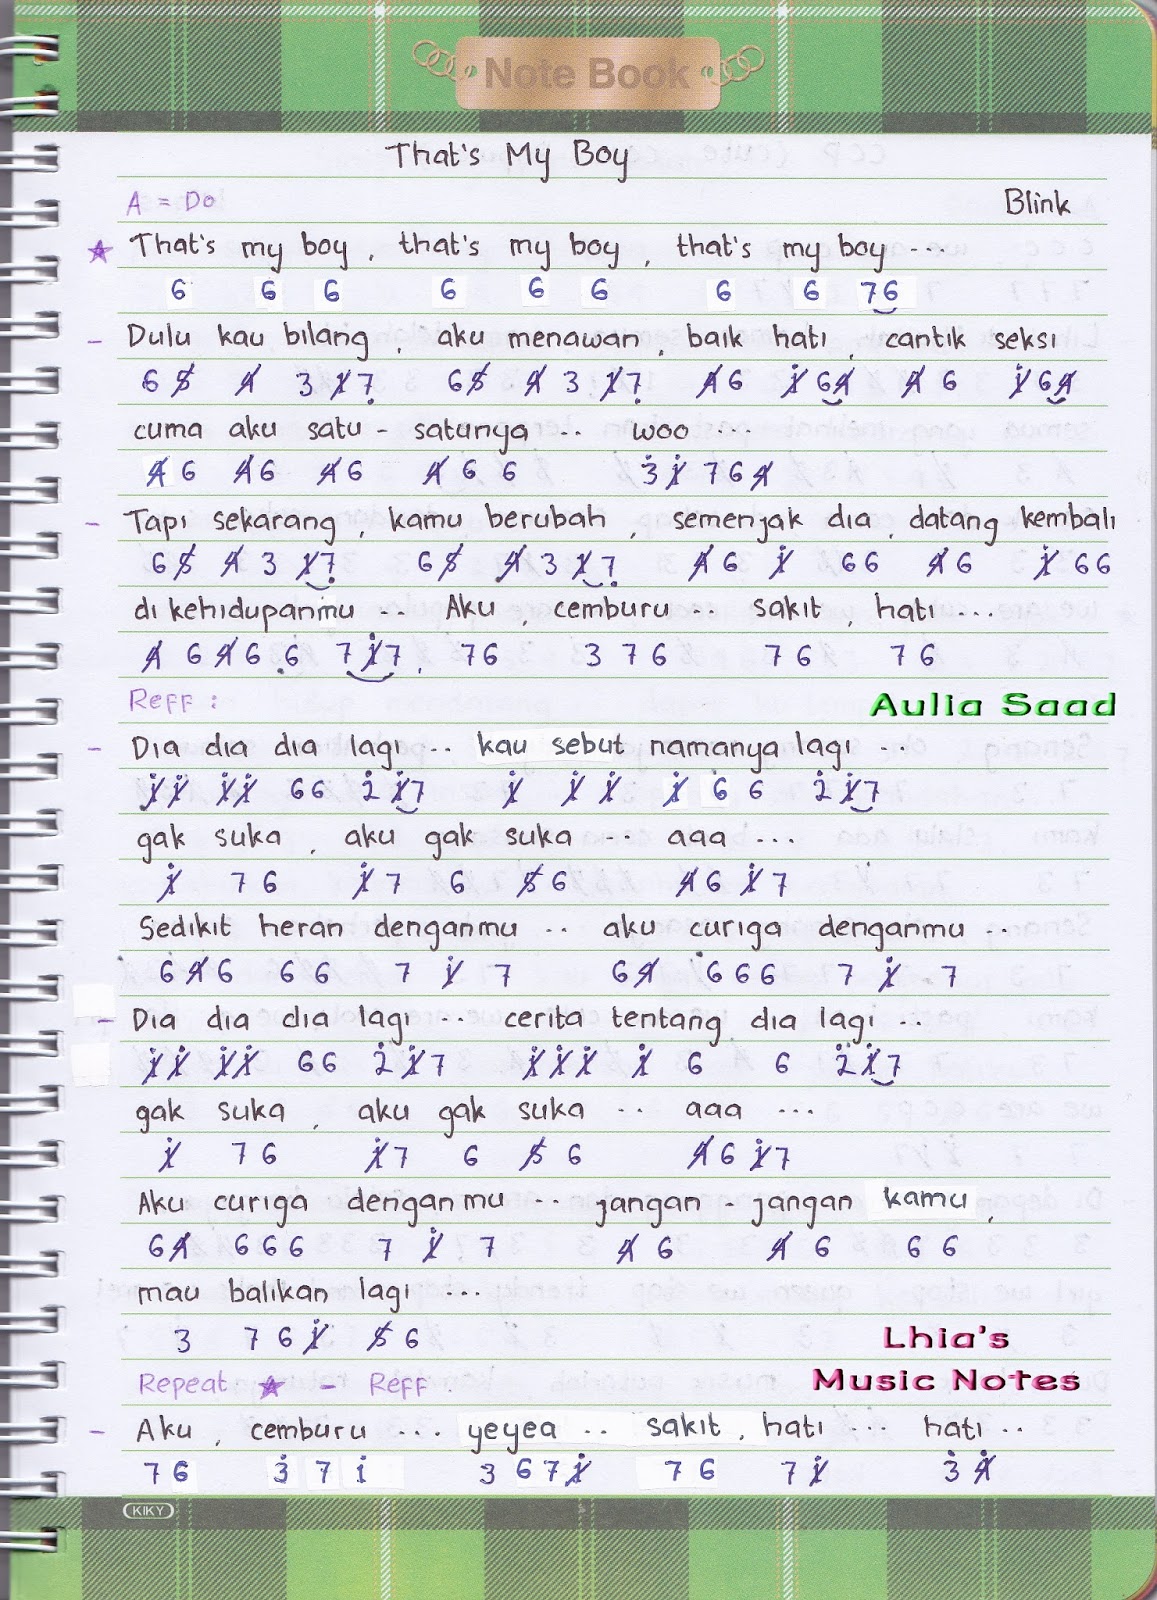 Note Book
That's My Boy
A = Do
Blink
★ That's my boy, that's my boy, that's my boy ...
6 6 6 6 6 6 6 6 76
- Dulu kau bilang, aku menawan, baik hati, cantik seksi
6 5̸ 4̸ 3 1̸ 7̣ 6 5̸ 4̸ 3 1̸ 7̣ 4̸ 6 1̸̇ 6 4̸ 4̸ 6 1̸̇ 6 4̸
cuma aku satu - satunya .. woo ...
4̸ 6 4̸ 6 4̸ 6 4̸ 6 6 3̇ 1̸̇ 7 6 4̸
- Tapi sekarang, kamu berubah, semenjak dia, datang kembali
6 5̸ 4̸ 3 1̸ 7̣ 6 5̸ 4̸ 3 1̸ 7̣ 4̸ 6 1̸̇ 6 6 4̸ 6 1̸̇ 6 6
di kehidupanmu ... Aku, cemburu .. sakit, hati ...
4̸ 6 4̸ 6 .6 7 1̸̇ 7, 7 6 3 7 6 7 6 7 6
Reff :
Aulia Saad
- Dia dia dia lagi .. kau sebut namanya lagi ..
1̸̇ 1̸̇ 1̸̇ 1̸̇ 6 6 2̇ 1̸̇ 7 1̸̇ 1̸̇ 1̸̇ 1̸̇ 6 6 2̇ 1̸̇ 7
gak suka, aku gak suka ... aaa ...
1̸̇ 7 6 1̸̇ 7 6 5̸ 6 4̸ 6 1̸̇ 7
Sedikit heran denganmu .. aku curiga denganmu ..
6 4̸ 6 6 6 7 1̸̇ 7 6 4̸ 6 6 6 7 1̸̇ 7
- Dia dia dia lagi .. cerita tentang dia lagi ..
1̸̇ 1̸̇ 1̸̇ 1̸̇ 6 6 2̇ 1̸̇ 7 1̸̇ 1̸̇ 1̸̇ 1̸̇ 6 6 2̇ 1̸̇ 7
gak suka, aku gak suka .. aaa ...
1̸̇ 7 6 1̸̇ 7 6 5̸ 6 4̸ 6 1̸̇ 7
Aku curiga denganmu .. jangan - jangan kamu,
6 4̸ 6 6 6 7 1̸̇ 7 4̸ 6 4̸ 6 6 6
mau balikan lagi ...
3 7 6 1̸̇ 5̸ 6
Lhia's
Music Notes
Repeat ★ - Reff
- Aku, cemburu ... yeyea .. sakit, hati ... hati ..
7 6 3̇ 7 1̇ 3 6 7 1̸̇ 7 6 7 1̸̇ 3̇ 4̸̇
KIKY